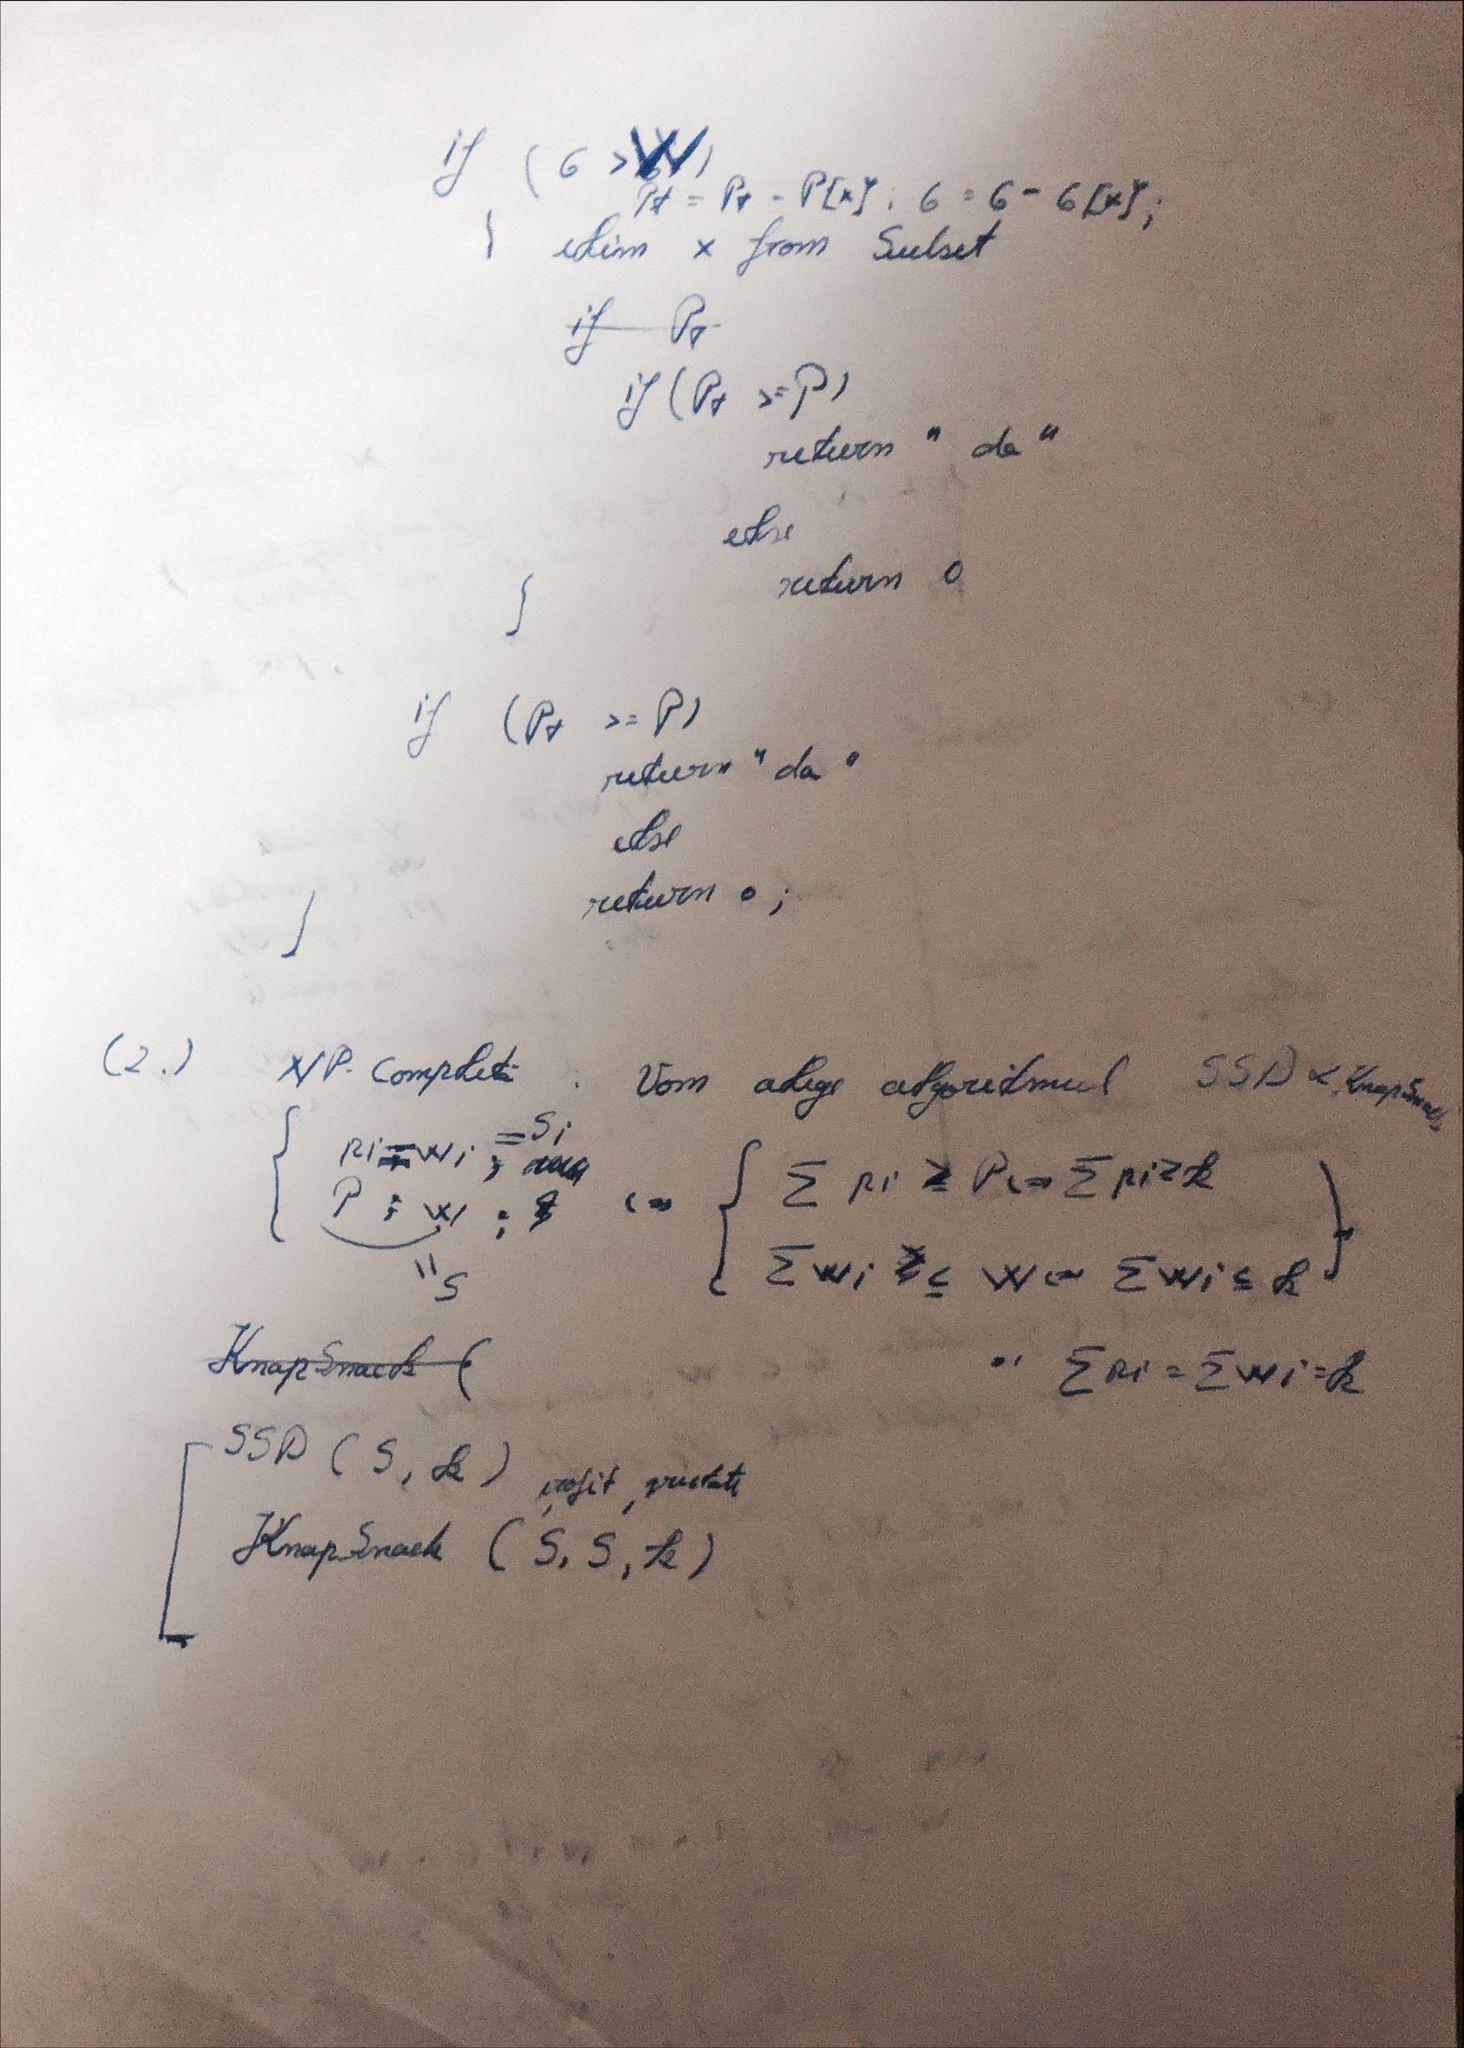 if ( G > W )
Pt = Pt - P[x]; G = G - G[x];
{ elim x from Subset
if Pt
if (Pt >= P)
return " da "
else
return 0
}
if (Pt >= P)
return " da "
else
return 0 ;
}
(2.) NP. Completă : Vom alege algoritmul SSD ∝ KnapSnack
pi = wi = Si
{ { Σ pi ≥ P Σ pi ≥ k )
P ; W ;
Σ wi ≤ W Σ wi ≤ k
" S
KnapSnack (
Σ pi = Σ wi = k
SSD ( S, k )
profit, greutate
KnapSnack ( S, S, k )